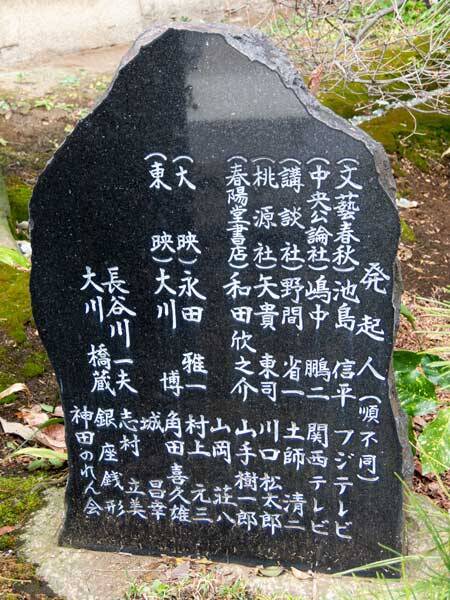 発起人(順不同)
(文藝春秋)池島 信平 フジテレビ
(中央公論社)嶋中 鵬二 関西テレビ
(講談社)野間 省一 土師 清二
(桃源社)矢貴 東司 川口 松太郎
(春陽堂書店)和田欣之介 山手 樹一郎
山岡 荘八
(大映)永田 雅一 村上 元三
(東映)大川 博 角田 喜久雄
城 昌幸
長谷川一夫 志村 立美
大川 橋蔵 銀座銭形
神田のれん会